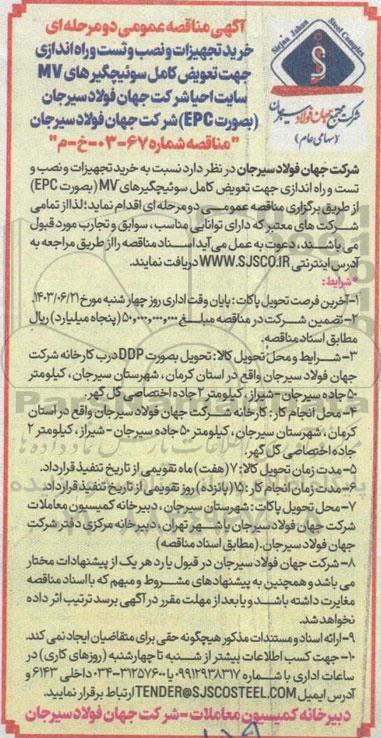 آگهی مناقصه عمومی دو مرحله ای
خرید تجهیزات و نصب و تست و راه اندازی
جهت تعویض کامل سوئیچگیر های MV
سایت احیا شرکت جهان فولاد سیرجان
(بصورت EPC) شرکت جهان فولاد سیرجان
"مناقصه شماره ۶۷-۰۳-خ-م"
Sirjan Jahan Steel Complex
شرکت مجتمع جهان فولاد سیرجان
(سهامی عام)
شرکت جهان فولاد سیرجان در نظر دارد نسبت به خرید تجهیزات و نصب و
تست و راه اندازی جهت تعویض کامل سوئیچگیرهای MV (بصورت EPC)
از طریق برگزاری مناقصه عمومی دو مرحله ای اقدام نماید؛ لذا از تمامی
شرکت های معتبر که دارای توانایی مناسب، سوابق و تجارب مورد قبول
می باشند، دعوت به عمل می آید اسناد مناقصه را از طریق مراجعه به
آدرس اینترنتی WWW.SJSCO.IR دریافت نمایند.
*شرایط:
۱-آخرین فرصت تحویل پاکات: پایان وقت اداری روز چهار شنبه مورخ ۱۴۰۳/۰۶/۲۱.
۲-تضمین شرکت در مناقصه مبلغ ۵۰,۰۰۰,۰۰۰,۰۰۰ (پنجاه میلیارد) ریال
مطابق اسناد مناقصه.
۳-شرایط و محل تحویل کالا: تحویل بصورت DDP درب کارخانه شرکت
جهان فولاد سیرجان واقع در استان کرمان، شهرستان سیرجان، کیلومتر
۵۰ جاده سیرجان-شیراز، کیلومتر ۲ جاده اختصاصی گل گهر.
۴-محل انجام کار: کارخانه شرکت جهان فولاد سیرجان واقع در استان
کرمان، شهرستان سیرجان، کیلومتر ۵۰ جاده سیرجان - شیراز، کیلومتر ۲
جاده اختصاصی گل گهر.
۵-مدت زمان تحویل کالا: ۷ (هفت) ماه تقویمی از تاریخ تنفیذ قرارداد.
۶-مدت زمان انجام کار: ۱۵ (پانزده) روز تقویمی از تاریخ تنفیذ قرارداد.
۷-محل تحویل پاکات: شهرستان سیرجان، دبیرخانه کمیسیون معاملات
شرکت جهان فولاد سیرجان یا شهر تهران، دبیرخانه مرکزی دفتر شرکت
جهان فولاد سیرجان. (مطابق اسناد مناقصه)
۸-شرکت جهان فولاد سیرجان در قبول یا رد هر یک از پیشنهادات مختار
می باشد و همچنین به پیشنهادهای مشروط و مبهم که با اسناد مناقصه
مغایرت داشته باشد و یا بعد از مهلت مقرر در آگهی برسد ترتیب اثر داده
نخواهد شد.
۹-ارائه اسناد و مستندات مذکور هیچگونه حقی برای متقاضیان ایجاد نمی کند.
۱۰-جهت کسب اطلاعات بیشتر از شنبه تا چهارشنبه (روزهای کاری) در
ساعات اداری با شماره ۰۹۹۱۲۹۳۸۳۱۷ یا ۳۱۲۵۷۶۰۰-۰۳۴ داخلی ۶۱۴۳ و
آدرس ایمیل TENDER@SJSCOSTEEL.COM ارتباط برقرار نمایید.
دبیرخانه کمیسیون معاملات - شرکت جهان فولاد سیرجان